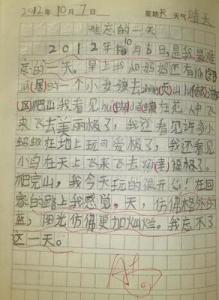 2012年10月7日 星期天 天气晴天
难忘的一天
2012年10月6日是我最难
忘的一天。早上我和妈妈还有
的一个小女孩去
爬山我看见 蝴蝶在花人中飞
来飞去美丽极了，我还看见许多小
蚂蚁在地上玩可爱极了，我还看见
小鸟在天上飞来飞去 极了。
爬完山，我今天玩的很开心！在回
家的路上我感觉。天，仿佛格外的
蓝，阳光仿佛更加灿烂。我忘不了
这一天。